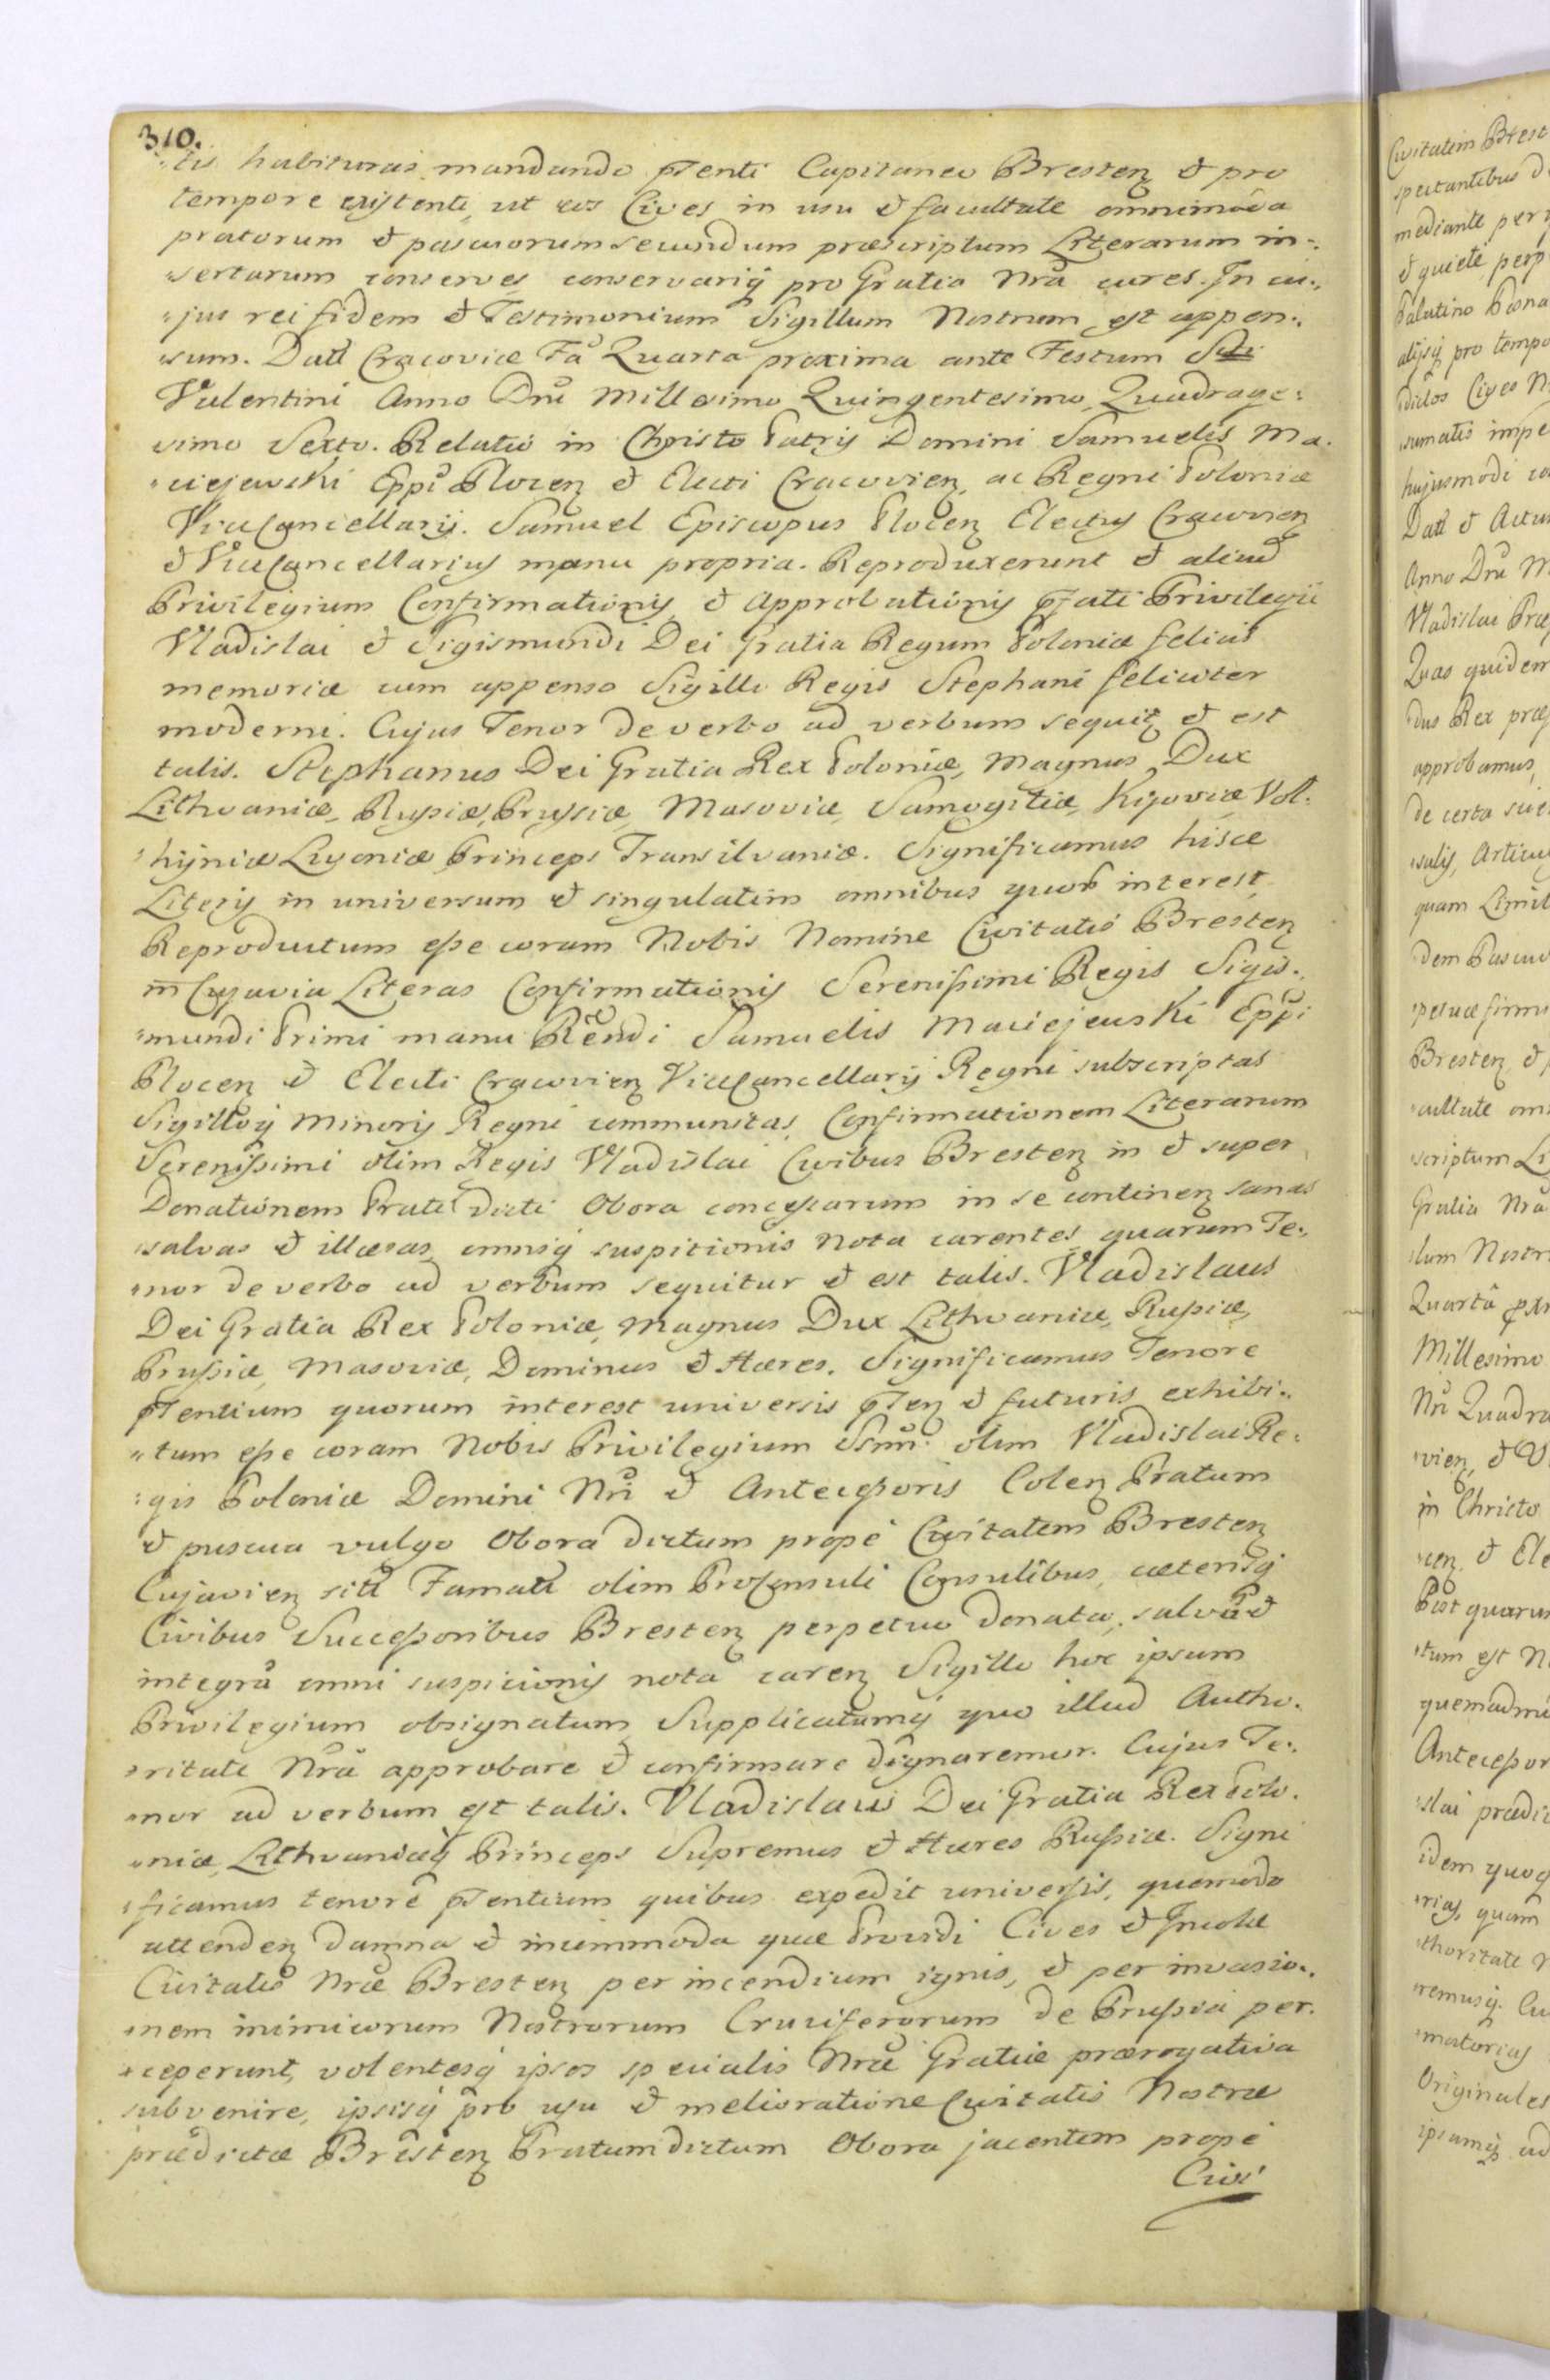 310.
"tis habituras mandando pñenti Capitaneo Bresteñ & pro
tempore existenti, ut eos Cives in usu & facultate omnimoda
pratorum & pascuorum secundum præscriptum Literarum in-
sertarum conserves conservariq pro Gratia Nrã cures. In cu-
"jus rei fidem & Testimonium Sigillum Nostrum est appen-
sum. Datt Cracoviæ Fã Quarta proxima ante Festum Sti
Valentini Anno Dnĩ Millesimo Quingentesimo Quadrage:
simo Sexto. Relatio in Christo Patris Domini Samuelis Ma-
"ciejewski Eppĩ Ploceñ & Electi Cracovieñ ac Regni Poloniæ
ViceCancellarij. Samuel Episcopus Ploceñ Electus Cracovieñ
& ViceCancellarius manu propria. Reproduxerunt & aliud
Privilegium Confirmationis & Approbationis pfati Privilegii
Vladislai & Sigismundi Dei Gratia Regum Poloniæ felicis
memoriæ cum appenso Sigillo Regis Stephani feliciter
moderni. Cujus Tenor de verbo ad verbum sequitz & est
talis. Stephanus Dei Gratia Rex Poloniæ, Magnus Dux
Lithvaniæ, Russiæ, Prussiæ, Masoviæ, Samogitiæ, Kijoviæ Vol-
"hijniæ Livoniæ Princeps Transilvaniæ. Significamus hisce
Literis in universum & singulatim omnibus quorũ interest
Reproductum esse coram Nobis Nomine Civitatis Bresteñ
in Cujavia Literas Confirmationis Serenissimi Regis Sigis-
"mundi Primi manu Rẽndi Samuelis Maciejewski Eppĩ
Ploceñ & Electi Cracovieñ ViceCancellarij Regni subscriptas
Sigilloq Minoris Regni communitas, Confirmationem Literarum
Serenissimi olim Regis Vladislai Civibus Bresteñ in & super
Donationem Prati dicti Obora concessarum in se contineñ sanas
salvas & illæsas, omniq suspitionis nota carentes quarum Te-
"nor de verbo ad verbum sequitur & est talis. Vladislaus
Dei Gratia Rex Poloniæ, Magnus Dux Lithvaniæ, Russiæ,
Prussiæ, Masoviæ, Dominus & Hæres. Significamus Tenore
pñentium quorum interest universis pñteñ & futuris, exhibi-
"tum esse coram Nobis Privilegium Ssmĩ olim Vladislai Re-
:gis Poloniæ Domini Nrĩ & Antecessoris Coleñ Pratum
& pascua vulgo Obora dictum prope Civitatem Bresteñ
Cujavieñ sitt Famatt olim Proconsuli Consulibus, cæterisq
Civibus Successoribus Bresteñ perpetuo donata, salvũ &
integrũ omni suspicionis nota careñ Sigillo hoc ipsum
Privilegium obsignatum, Supplicatumq quo illud Autho-
"ritate Nrã approbare & confirmare dignaremur. Cujus Te-
"nor ad verbum est talis. Vladislaus Dei Gratia Rex Polo-
"niæ, Lithvaniæq Princeps Supremus & Hæres Russiæ. Signi
"ficamus tenore pñentium quibus expedit universis, quomodo
attendeñ damna & incommoda quæ Providi Cives & Incolæ
Civitatis Nræ Bresteñ per incendium ignis, & per invasio-
"nem inimicorum Nostrorum Cruciferorum de Prussia per-
"ceperunt, volentesq ipsos specialis Nræ Gratiæ prærogativa
subvenire, ipsisq pro usu & melioratione Civitatis Nostræ
prædictæ Bresteñ Pratum dictum Obora jacentem prope
Civi
Civitatem Brest
spectantibus
mediante per
& quiete, perp
Palatino
alijsq pro tempo
dictos Cives N
sumatis impe
hujusmodi co
Datt & Actu
Anno Dnĩ M
Vladislai Præ
Quas quidem
"dus Rex præ
approbamus,
de certa sci
sulis, Articu
quam Limit
dem Pascuo
petuæ firmi
Bresteñ, &
cultate om
scriptum Li
Gratia Nrã
lum Nostr
Quarta pxi
Millesimo
Nrĩ Quadra
vieñ, & V
in Christo
ceñ, & Ele
Post quarum
"tum est N
quemadmo
Antecessor
slai prædic
idem quoq
rias, quam
thoritate N
remusq. Cu
matorias
Originales
ipsamq ad